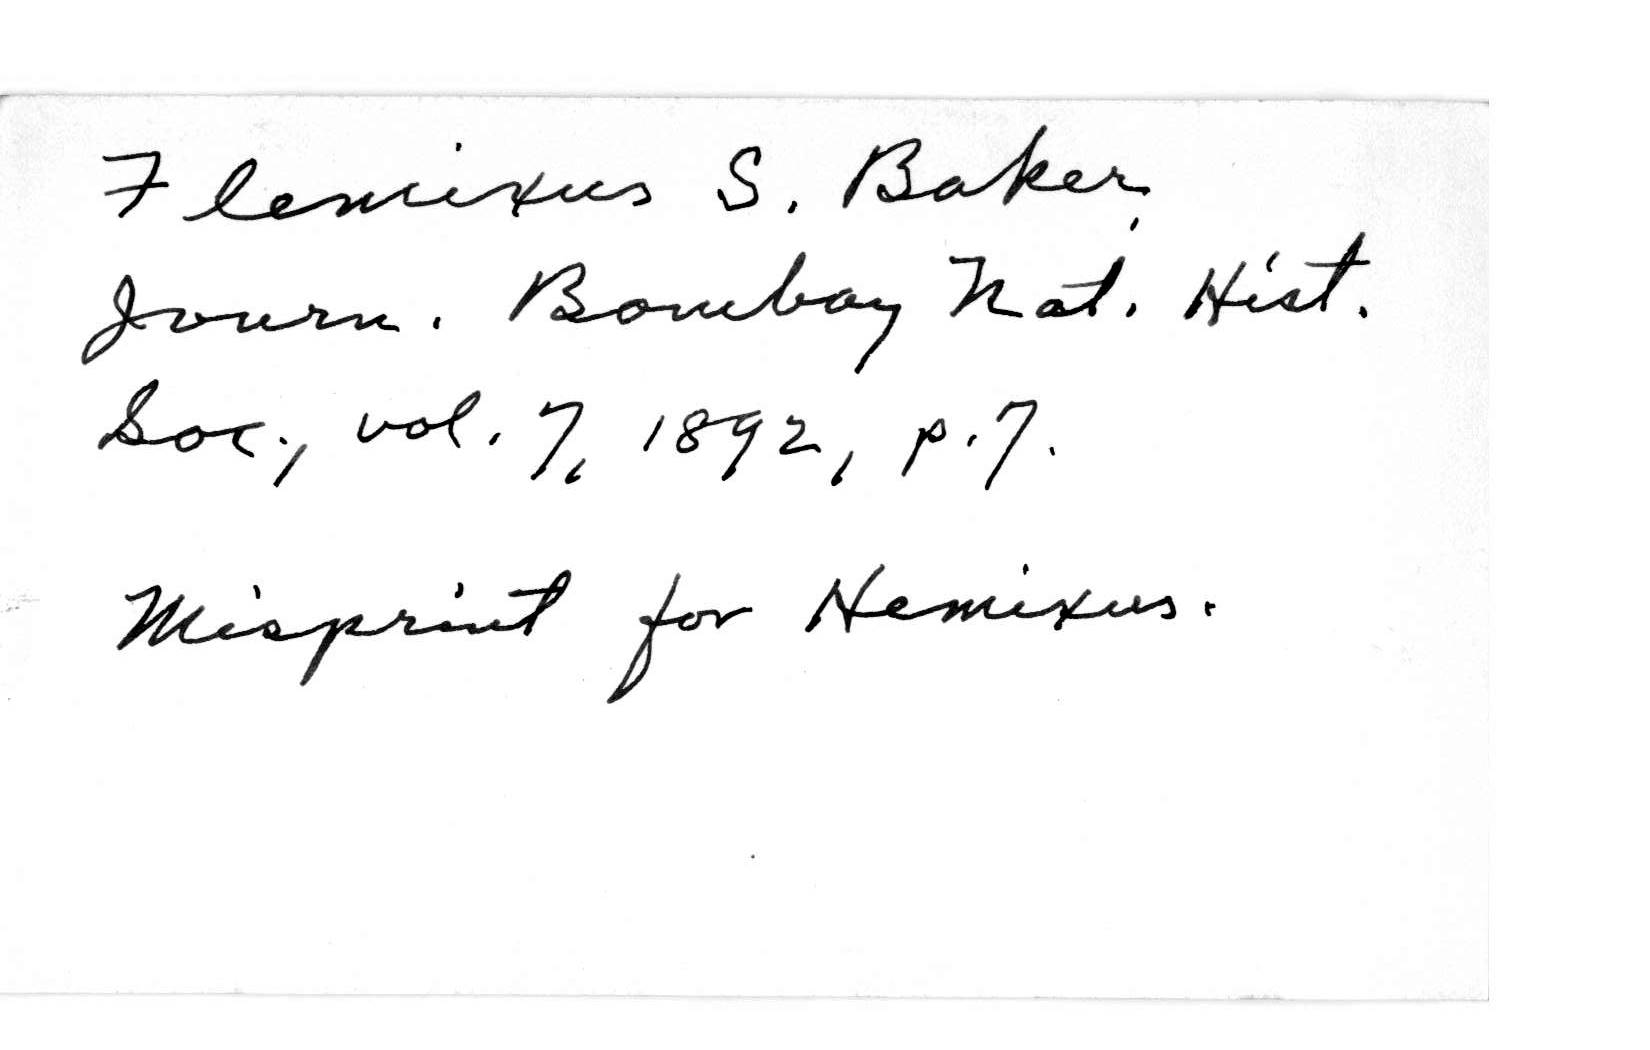 Flemixus S. Baker,
Journ. Bombay Nat. Hist.
Soc., vol. 7, 1892, p. 7.
Misprint for Hemixus.